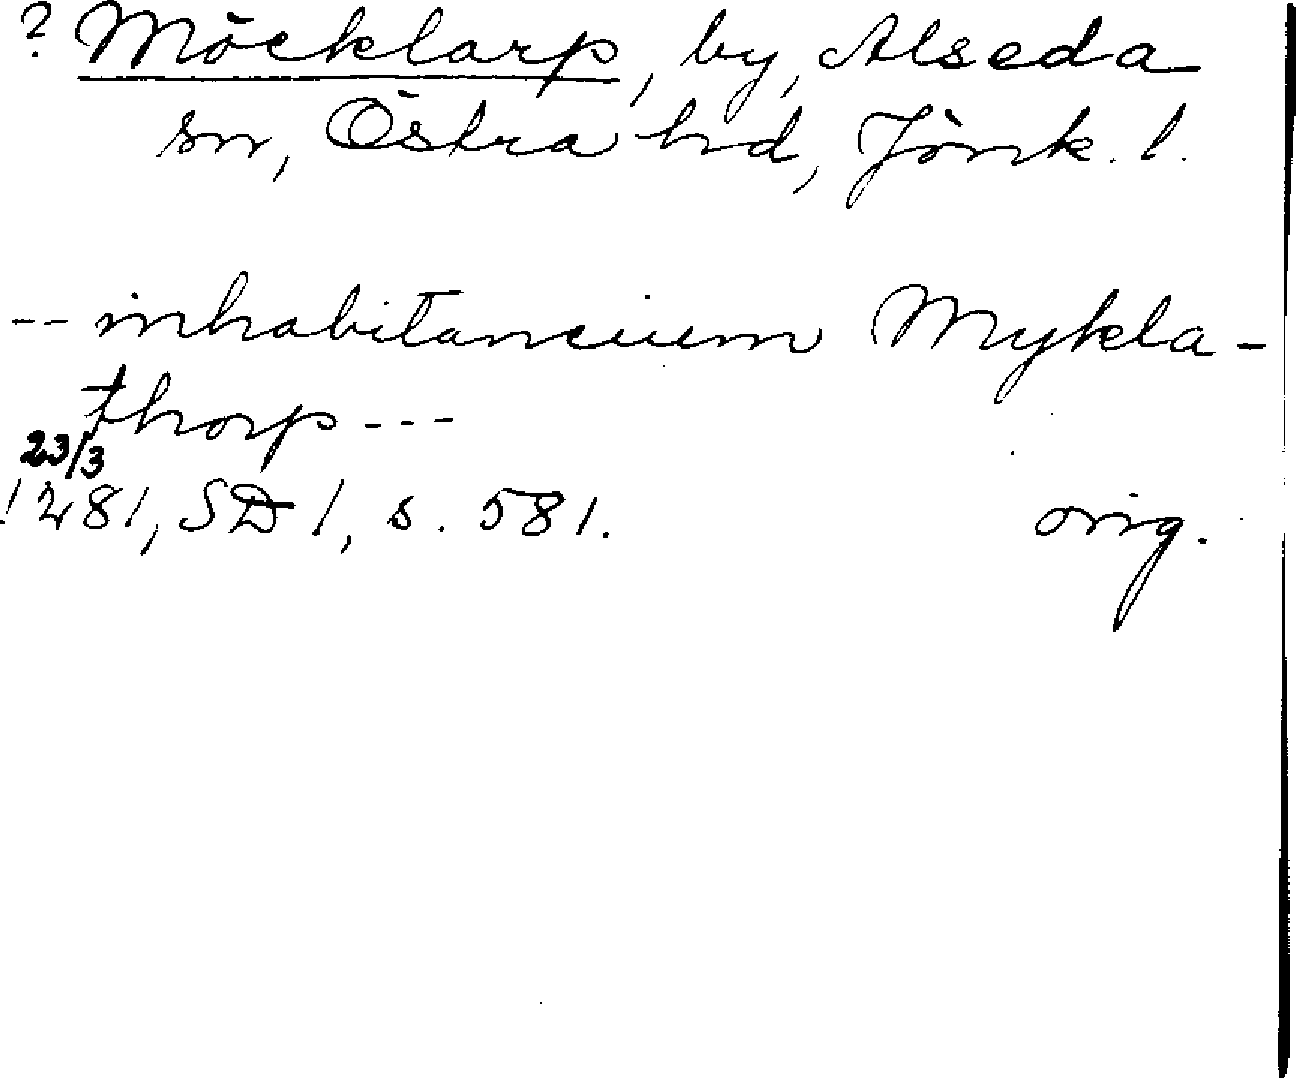 ? Möcklarp, by, Alseda
sn, Östra hd, Jönk. l.
-- inhabitancium Mykla-
thorp ---
23/3
1281, SD 1, s. 581. orig.